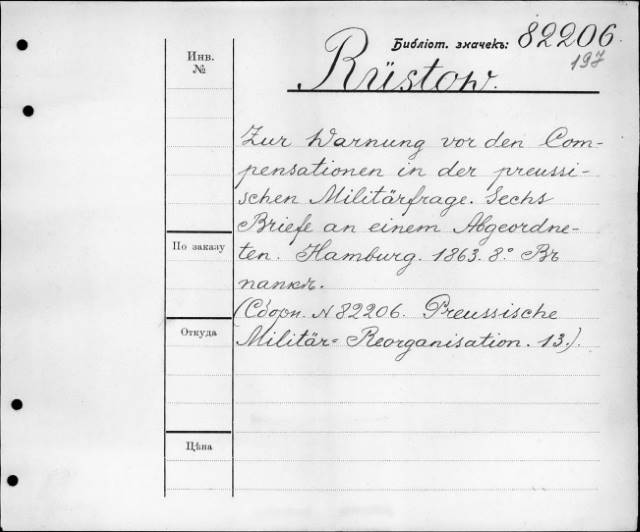 Библіот. значекъ: 82206
197
Инв.
№
Rüstow.
Zur Warnung vor den Com-
pensationen in der preussi-
schen Militärfrage. Sechs
Briefe an einem Abgeordne-
ten. Hamburg. 1863. 8° Въ
папкѣ.
(Сборн. N 82206. Preussische
Militär-Reorganisation. 13.).
По заказу
Откуда
Цѣна